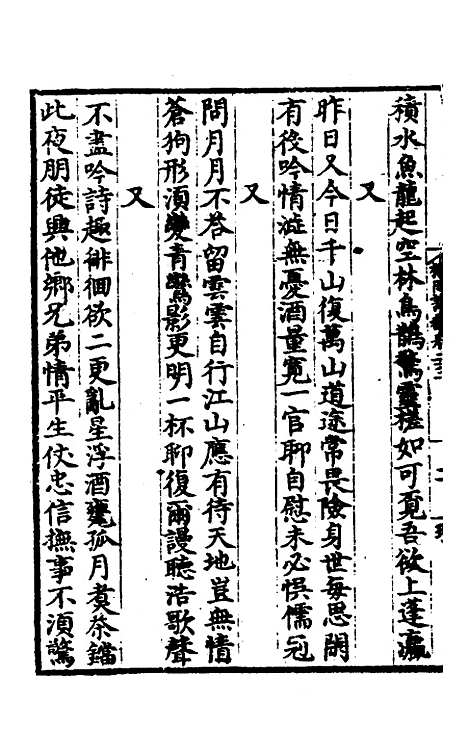 積水魚龍起空林鳥鵲驚靈槎如可覓吾欲上蓬瀛
又
昨日又今日千山復萬山道途常畏險身世每思閒
有役吟情澁無憂酒量寛一官聊自慰未必悞儒冠
又
問月月不荅留雲雲自行江山應有待天地豈無情
蒼狗形湏變青鸞影更明一杯聊復爾謾聽浩歌聲
又
不盡吟詩趣徘徊欲二更亂星浮酒甕孤月煑茶鐺
此夜朋徒興他鄉兄弟情平生仗忠信撫事不湏驚